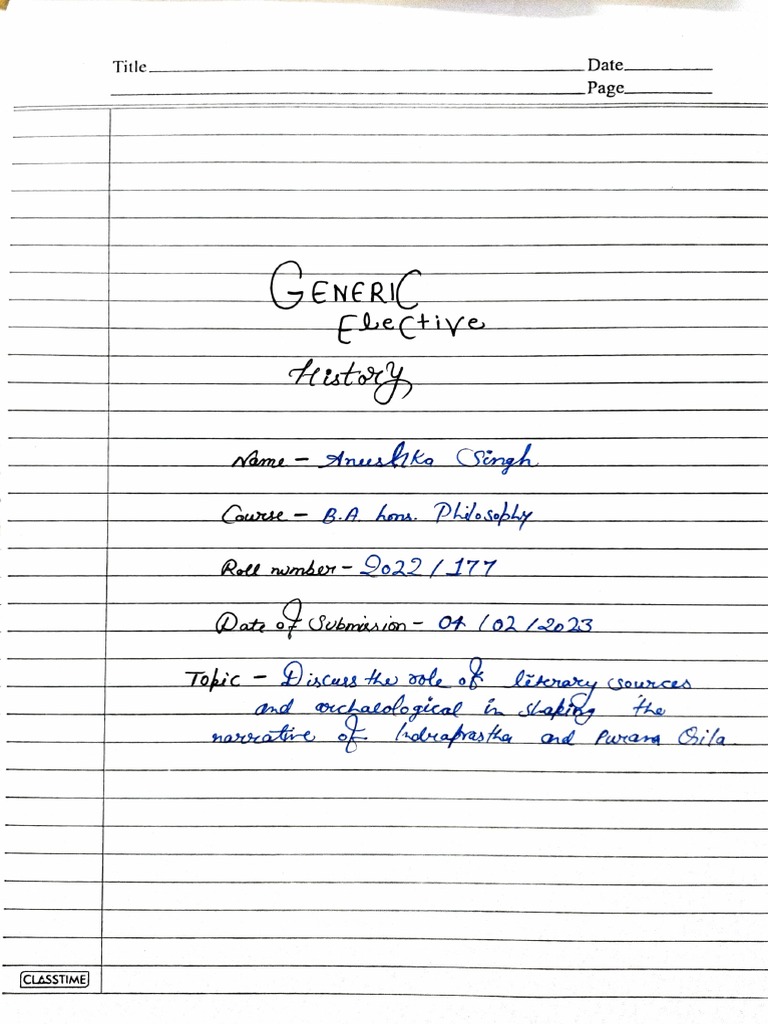 Title Date
Page
GENERIC
Elective
History
Name - Anushka Singh
Course - B.A. hons. Philosophy
Roll number - 2022/177
Date of Submission - 04/02/2023
Topic - Discuss the role of literary sources
and archaeological in shaping the
narrative of Indraprastha and Purana Qila
CLASSTIME